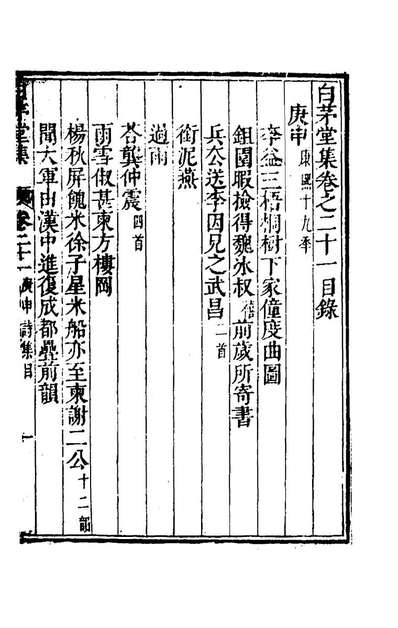 白茅堂集卷之二十一目錄
庚申康熙十九年
李益三梧桐樹下家僮度曲圖
鉏園暇檢得魏冰叔禧前歲所寄書
兵公送李因兄之武昌二首
銜泥燕
過雨
荅龔仲震四首
雨雪俶甚柬方樓岡
楊秋屏餽米徐子星米船亦至柬謝二公十二韻
聞大軍由漢中進復成都疊前韻
白茅堂集 卷二十一 庚申詩集目 一